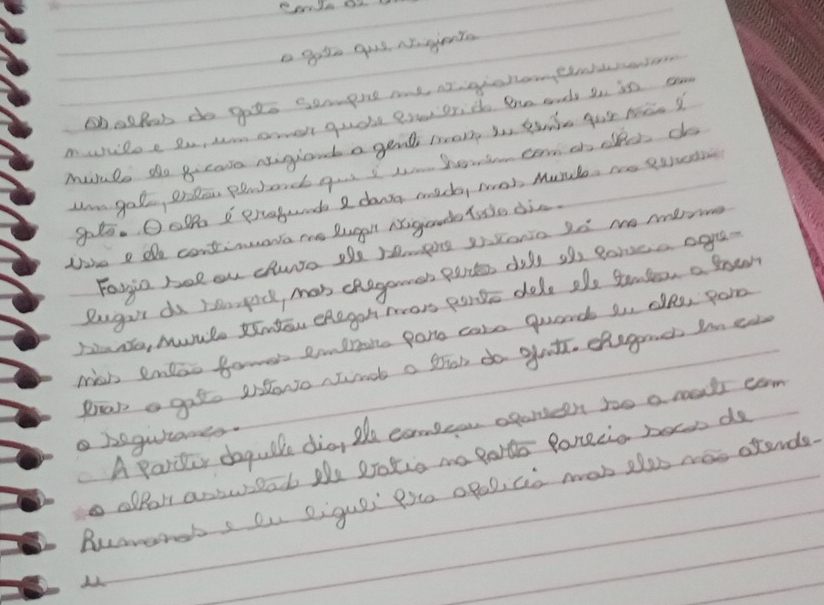 Conto de
o gato que vigiava
Os olhos do gato sempre me vigiaram,
murilo e eu, um amor quase era onde eu ia com
murilo ele ficava vigiando a gente mais eu que não é
um gato, estou pensando que é um homem com os olhos do
gato. O olho é profundo e dava medo, mas Murilo
isso e ele continuava no lugar vigiando todo dia.
Fazia sol ou chuva ele sempre estava lá no mesmo
lugar de sempre, mas chegamos perto dele ele parecia agre-
murilo tentou chegar mais perto dele ele tentou a
mas então fomos embora para casa quando eu olhei para
tras o gato estava vindo a tras da gente. chegamos em casa
a segurança.
A partir daquele dia, ele começou aparecer so a noite com
o olhar assustado ele batia na porta parecia socos de
Humanos e eu liguei pra apolicia mas eles não atende-
u